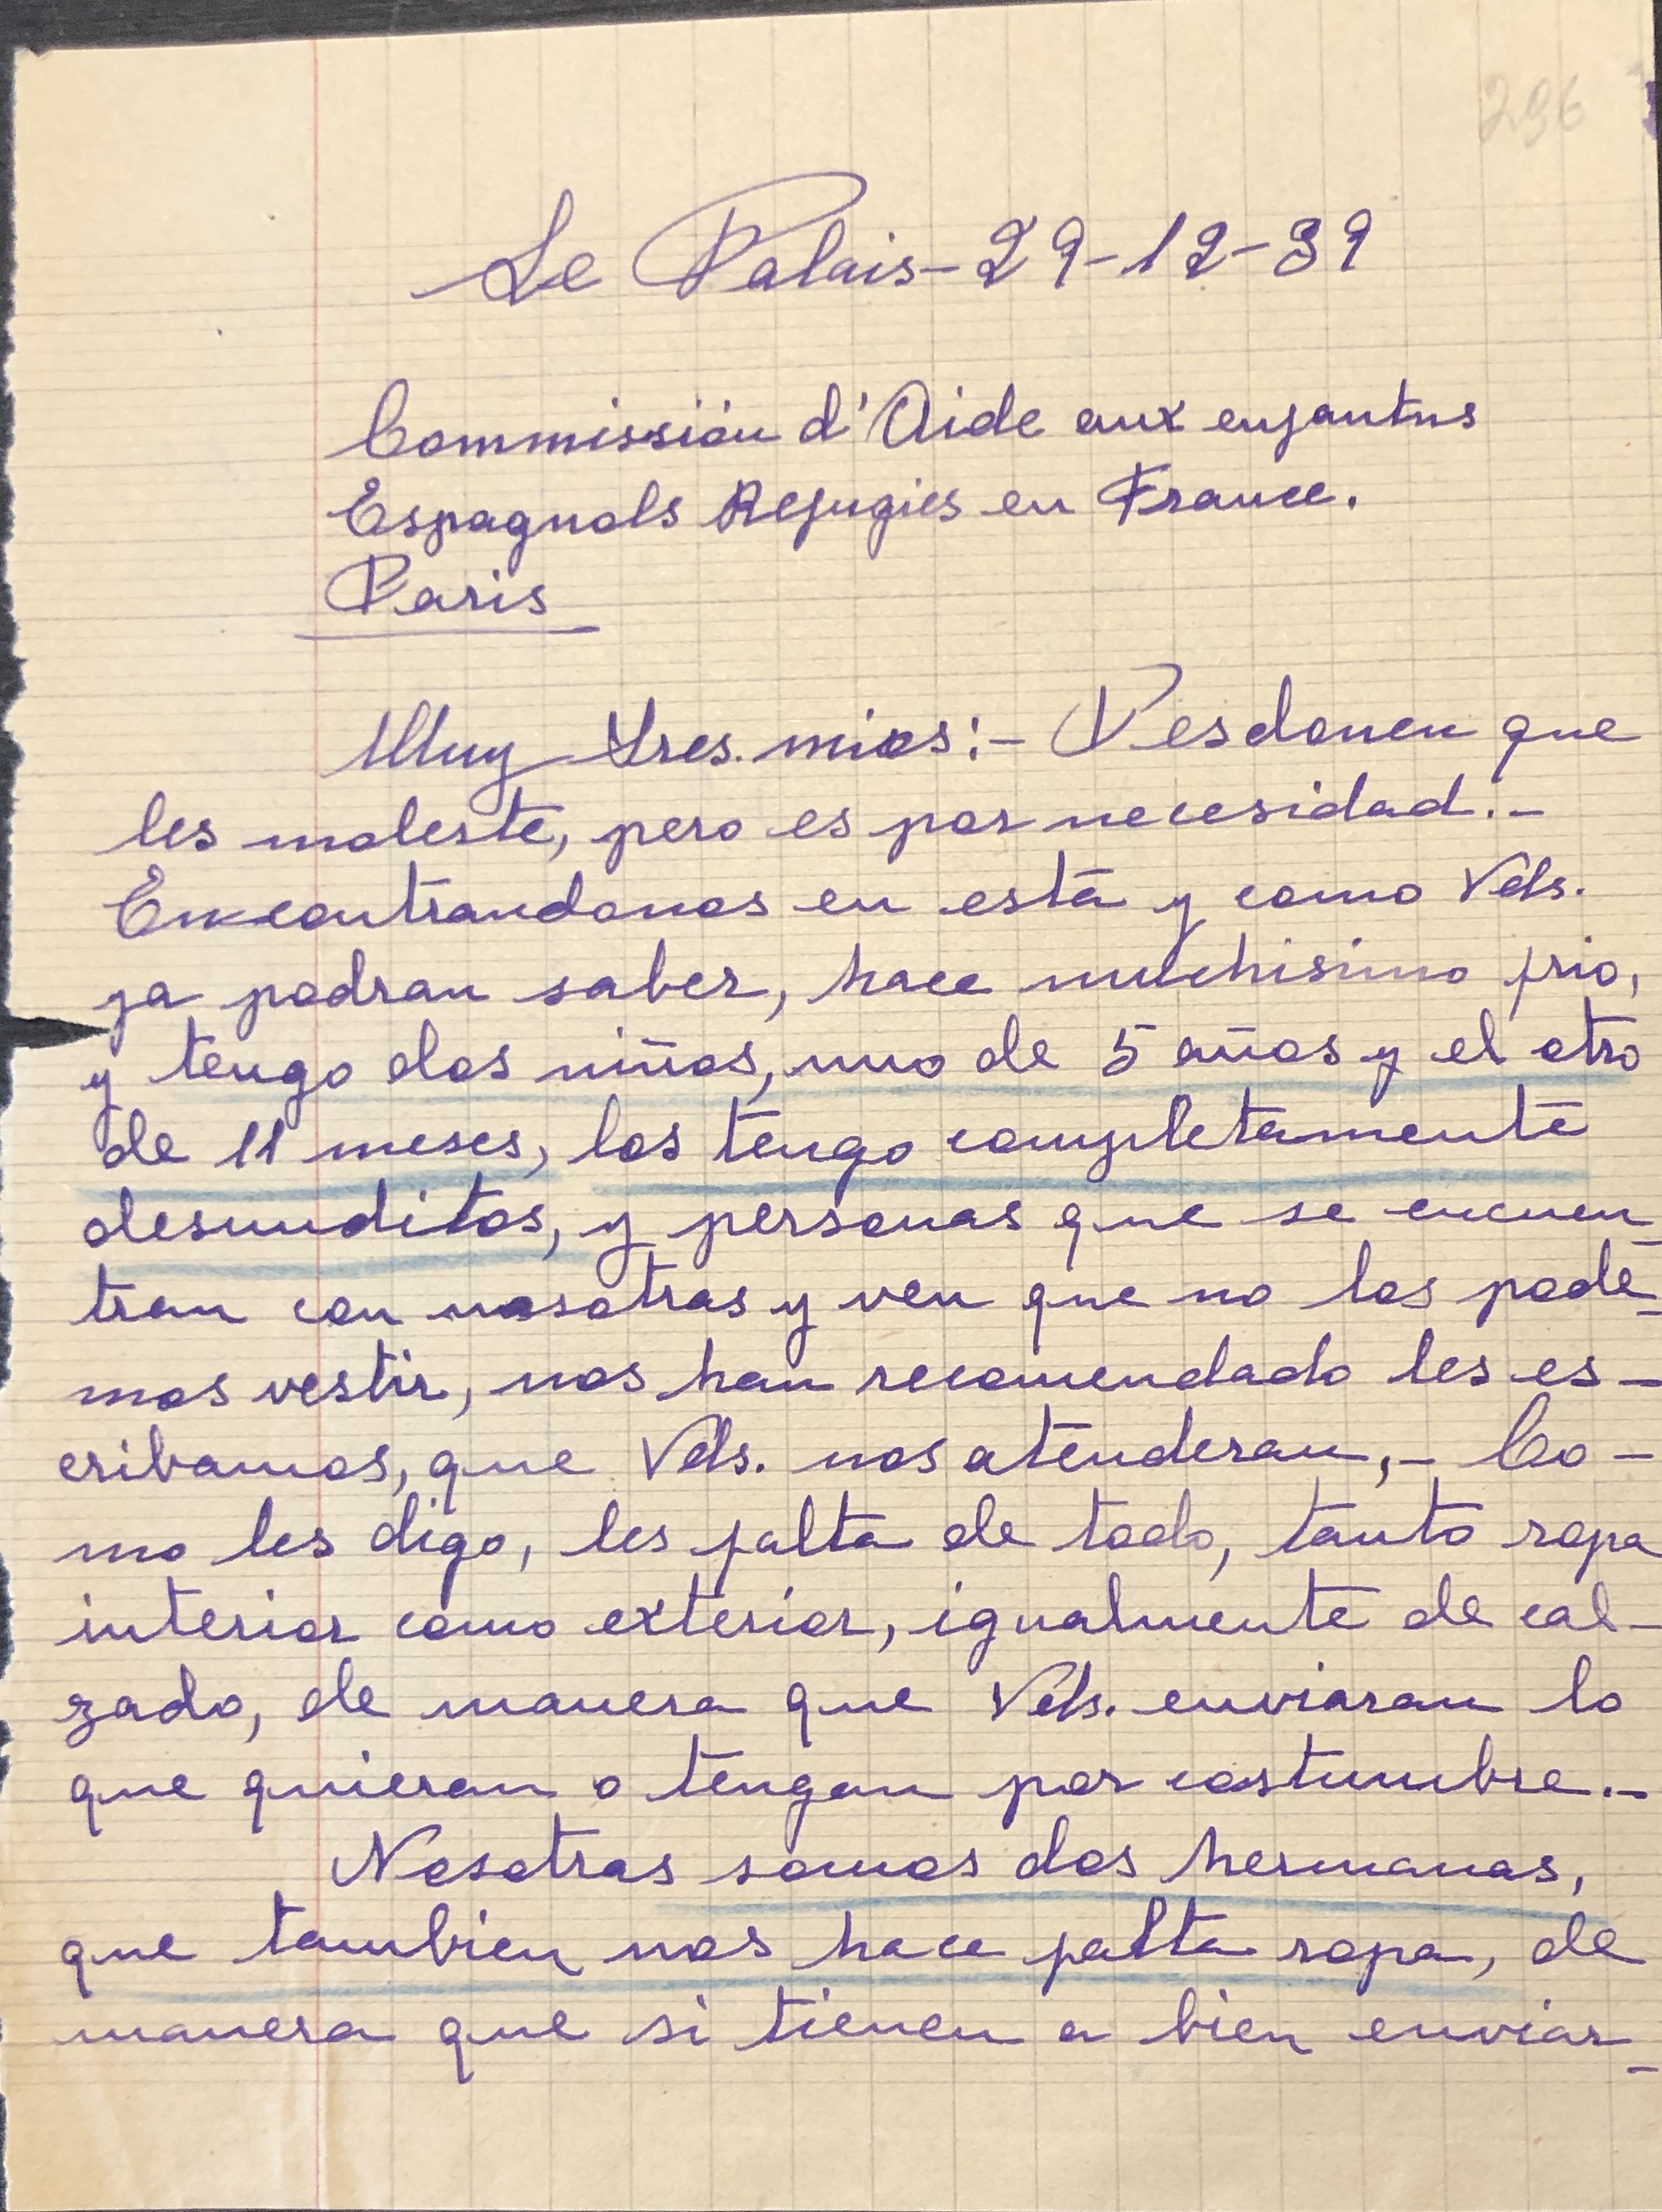 296
Le Palais-29-12-39
Commissión d'Aide aux enfantns
Espagnols Refugies en France.
Paris
Muy Sres. mios:- Perdonen que
les moleste, pero es por necesidad.-
Encontrandonos en esta y como Vds.
ya podran saber, hace muchisimo frio,
y tengo dos niños, uno de 5 años y el otro
de 11 meses, los tengo completamente
desnuditos, y personas que se encuen-
tran con nosotras y ven que no los pode-
mos vestir, nos han recomendado les es-
cribamos, que Vds. nos atenderan,- Co-
mo les digo, les falta de todo, tanto ropa
interior como exterior, igualmente de cal-
zado, de manera que Vds. enviaran lo
que quieran o tengan por costumbre.-
Nosotras somos dos hermanas,
que tambien nos hace falta ropa, de
manera que si tienen a bien enviar-